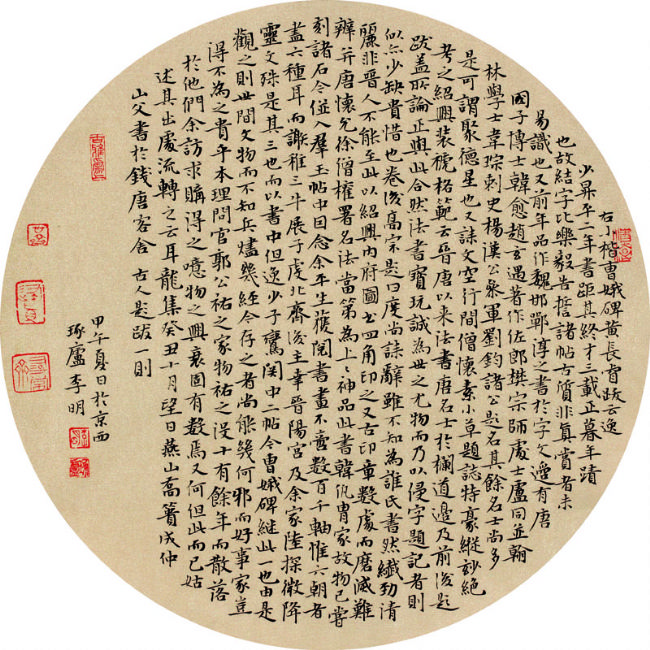 右小楷曹娥碑黄長睿跋云逸
少昇平二年書距其終才三載正暮年蹟
也故結字比樂毅告誓諸帖古質非真賞者未
易識也又前年品作魏邯鄲淳之書於字文邊有唐
國子博士韓愈趙玄遇著作佐郎樊宗師處士盧同並翰
林學士韋琮刺史楊漢公參軍劉鈞諸公題名其餘名士尚多
是可謂聚德星也又誄文空行間僧懷素小草題誌特豪縱妙絶
考之紹興裝褫格範云晉唐以來法書唐名士於欄道邊及前後題
跋蓋所論正與此合然法書寶玩誠為世之尤物而乃以侵字題記者則
似亦少缺貴惜也卷後高宗題曰度尚誄辭雖不知為誰氏書然纖勁清
麗非晉人不能至此以紹興内府圖書四角印之又古印章數處而磨滅難
辨并唐懷允徐僧權署名法當第為上上神品此書韓侂胄家故物已嘗
刻諸石令從文羣玉帖中因念余年生獲閲書畫不啻數百千軸惟六朝者
盡六種耳而謝稚三牛展子虔北齊後主幸晉陽宮及余家陸探微降
靈文殊是其三也而以書中但逸少子鸞閑中二帖令曹娥碑継此一也由是
觀之則世間文物而不知兵燼幾經今存之者尚能幾何邪而好事家豈
得不為之貴乎本理問官郭公祐之家物祐之没十有餘年而散落
於他們余訪求購得之噫物之興衰固有數焉又何但此而已姑
述其出處流轉之云耳龍集癸丑十月望日燕山喬簣成仲
山父書於錢唐客舍 古人題跋一則
甲午夏日於京西
琢廬李明